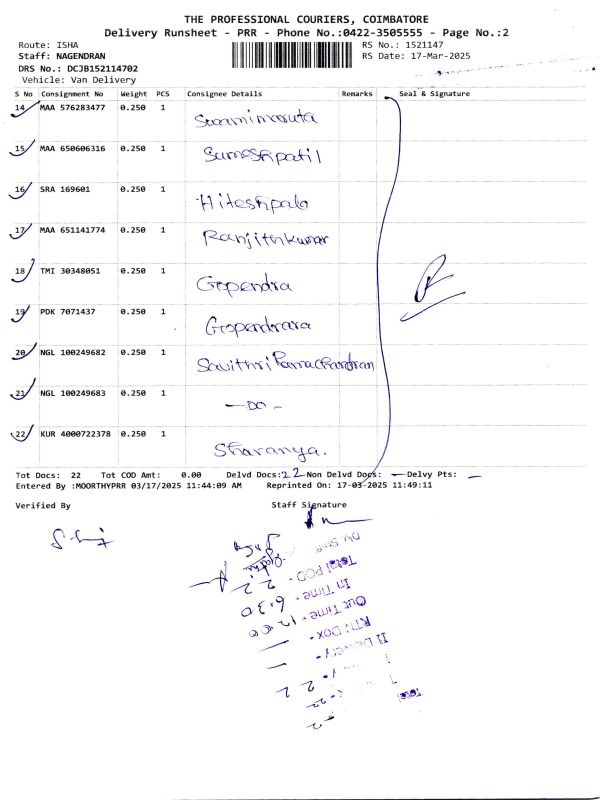 THE PROFESSIONAL COURIERS, COIMBATORE
Delivery Runsheet - PRR - Phone No.:0422-3505555 - Page No.:2
Route: ISHA
RS No.: 1521147
Staff: NAGENDRAN
RS Date: 17-Mar-2025
DRS No.: DCJB152114702
Vehicle: Van Delivery
S No Consignment No Weight PCS Consignee Details Remarks Seal & Signature
14 MAA 576283477 0.250 1 Swamimaruta
15 MAA 650606316 0.250 1 Sumeshpatil
16 SRA 169601 0.250 1 Hiteshpalo
17 MAA 651141774 0.250 1 Ranjithkumar
18 TMI 30348051 0.250 1 Gopendra
19 PDK 7071437 0.250 1 Gopendrara
20 NGL 100249682 0.250 1 Savithri Ramachandran
21 NGL 100249683 0.250 1 - DO -
22 KUR 4000722378 0.250 1 Sharanya.
Tot Docs: 22 Tot COD Amt: 0.00 Delvd Docs: 22 Non Delvd Docs: - Delvy Pts: -
Entered By :MOORTHYPRR 03/17/2025 11:44:09 AM Reprinted On: 17-03-2025 11:49:11
Verified By Staff Signature
Total
II Delivery -
RTN Dox -
Out Time - 12.00
In Time - 6.30
Total POD - 22